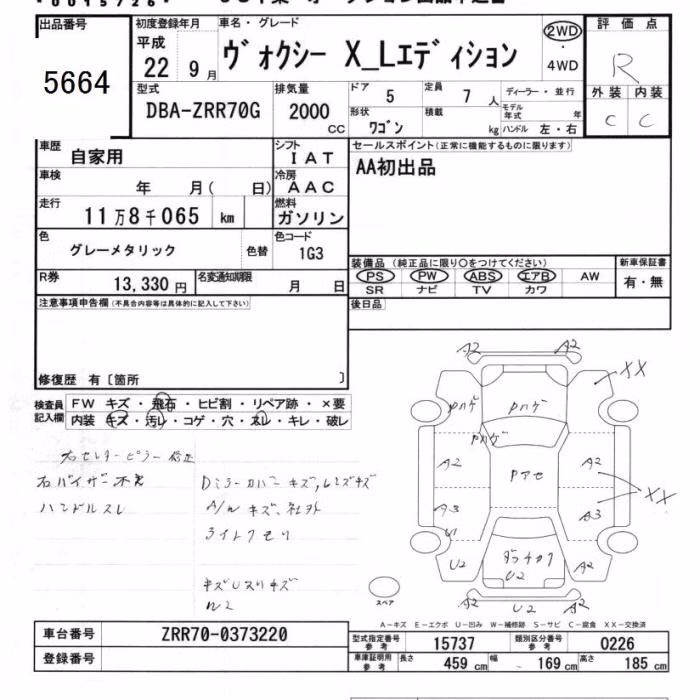 出品番号
5664
初度登録年月
平成
22 9月
車名・グレード
ヴォクシー X_Lエディション
2WD
・
4WD
評価点
R
外装 内装
C C
型式
DBA-ZRR70G
排気量
2000
CC
ドア 5
定員 7 人
ディーラー・並行
形状
ワゴン
積載
kg
モデル年式 年
ハンドル 左・右
車歴
自家用
シフト
IAT
車検
年 月( 日)
冷房
AAC
走行
11万8千065 km
燃料
ガソリン
色
グレーメタリック
色替
色コード
1G3
R券
13,330 円
名変通知期限
月 日
セールスポイント(正常に機能するものに限ります)
AA初出品
装備品 (純正品に限り○をつけてください)
PS PW ABS エアB AW
SR ナビ TV カワ
新車保証書
有・無
後日品
注意事項申告欄(不具合内容等は具体的に記入して下さい)
修復歴 有〔箇所 〕
検査員記入欄
FW キズ・飛石・ヒビ割・リペア跡・×要
内装 キズ・汚レ・コゲ・穴・スレ・キレ・破レ
右センターピラー修正
右バイザー不良
ハンドルスレ
Dミラーカバーキズ,レンズキズ
A/wキズ、社外
ライトクモリ
A2 A2
XX
Pハゲ Pハゲ
Pハゲ
A2 Pアセ A2
XX
A3 A3
U1
U2 U2 A2
A2 U2 A2
スペア
A-キズ E-エクボ U-凹み W-補修跡 S-サビ C-腐食 XX-交換済
車台番号
ZRR70-0373220
登録番号
型式指定番号
参考
15737
類別区分番号
参考
0226
車庫証明用
参考
長さ 459 cm 幅 169 cm 高さ 185 cm